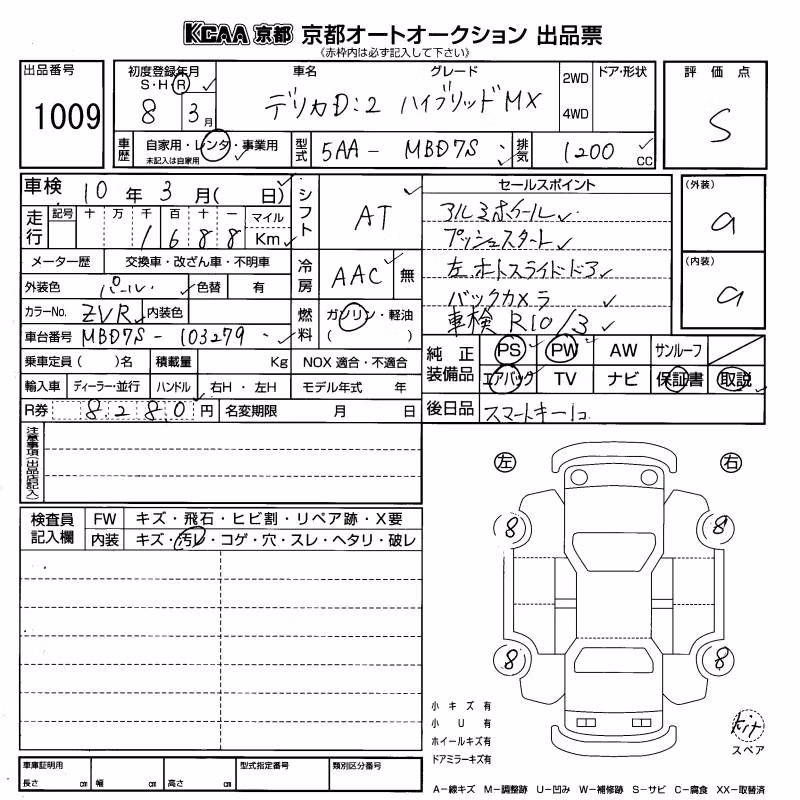 KCAA 京都 京都オートオークション 出品票
《赤枠内は必ず記入して下さい》
出品番号
1009
初度登録年月
S・H・R
8 3月
車名 グレード
デリカD:2 ハイブリッドMX
2WD
4WD
ドア・形状
評価点
S
車歴
自家用・レンタ・事業用
未記入は自家用
型式
5AA- MBD7S
排気
1200 cc
車検 10年 3月( 日)
シフト
AT
走行
記号 十 万 千 百 十 一 マイル
1 6 8 8 Km
メーター歴 交換車・改ざん車・不明車
冷房
AAC 無
外装色 パール 色替 有
カラーNo. ZVR 内装色
燃料
ガソリン・軽油
( )
車台番号 MBD7S-103279
乗車定員( )名 積載量 Kg NOX 適合・不適合
輸入車 ディーラー・並行 ハンドル 右H・左H モデル年式 年
R券 8280円 名変期限 月 日
セールスポイント
アルミホイール
プッシュスタート
左オートスライドドア
バックカメラ
車検 R10/3
(外装)
a
(内装)
a
純正装備品
PS PW AW サンルーフ
エアバック TV ナビ 保証書 取説
後日品 スマートキー1コ
注意事項(出品店記入)
検査員記入欄
FW キズ・飛石・ヒビ割・リペア跡・X要
内装 キズ・汚レ・コゲ・穴・スレ・ヘタリ・破レ
左 右
8 8
8 8
小キズ有
小U有
ホイールキズ有
ドアミラーキズ有
kit
スペア
車庫証明用
長さ cm 幅 cm 高さ cm
型式指定番号 類別区分番号
A-線キズ M-調整跡 U-凹み W-補修跡 S-サビ C-腐食 XX-取替済